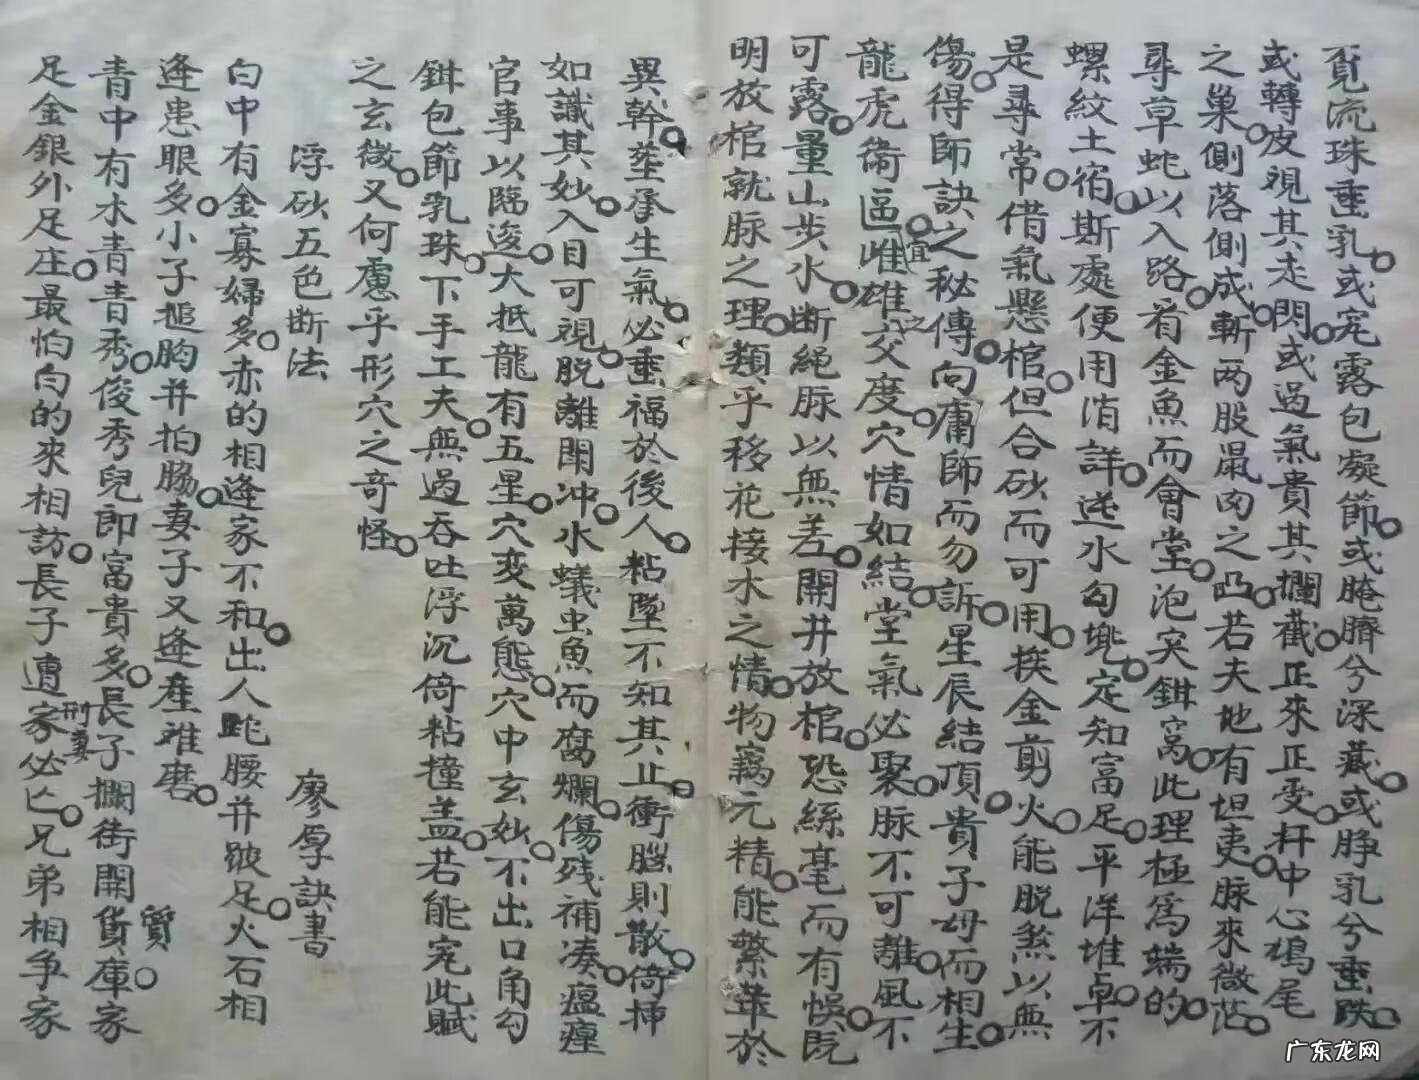 覔流珠垂乳。或宛露包凝節。或腌臍兮深藏。或脖乳兮垂跌。
或轉皮視其走閃。或過氣貴其攔截。正來正受。杆中心鳩尾
之巢。側落側成。斬两股鼠肉之凸。若夫地有坦夷。脉來微茫。
尋草蛇以入路。看金魚而會堂。泡突鉗窩。此理極爲端的。
螺紋土宿。斯處便用消詳。逆水勾坳。定知富足。平洋堆卓。不
是尋常。借氣懸棺。但合砂而可用。挨金剪火。能脱煞以無
傷。得師訣之秘傳。向庸師而勿訴。星辰結頂。貴子母而相生。
龍虎衛區。宜雌雄之交度。穴情如結。堂氣必聚。脉不可離。風不
可露。量山步水。断繩脉以無差。開井放棺。恐絲毫而有悞。既
明放棺就脉之理。類乎移花接水之情。物竊元精。能繁華於
異幹。塟承生氣。必垂福於後人。粘墜不知其止。衝腦則散。倚揷
如識其妙。入目可視。脱離閗冲。水蟻虫魚而腐爛。傷残補湊。瘟㾏
官事以臨逡。大抵龍有五星。穴变萬態。穴中玄妙。不出口角勾
鉗包節乳珠。下手工夫。無過吞吐浮沉倚粘撞盖。若能宛此賦
之玄微。又何慮乎形穴之奇怪。
浮砂五色断法
廖厚訣書
白中有金寡婦多。赤的相逢家不和。出人跎腰并跛足。火石相
逢患眼多。小子搥胸并拍脇。妻子又逢産难磨。
青中有水青青秀。俊秀兒郎富貴多。長子攔街開貨庫。家 質
足金銀外足庄。最怕白的來相訪。長子遭刑妻家必亡。兄弟相争家
广东龙网